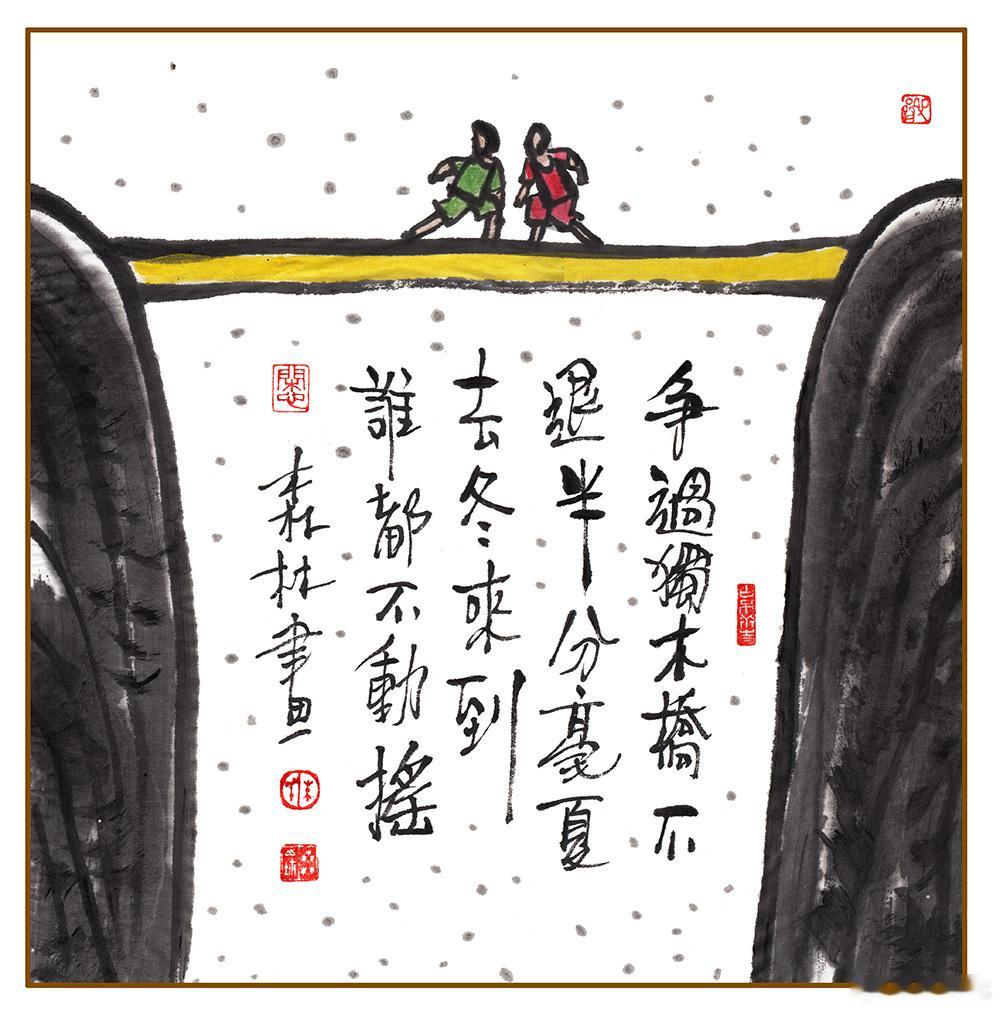 争過獨木橋不
退半分毫夏
去冬來到
誰都不動摇
森林畫